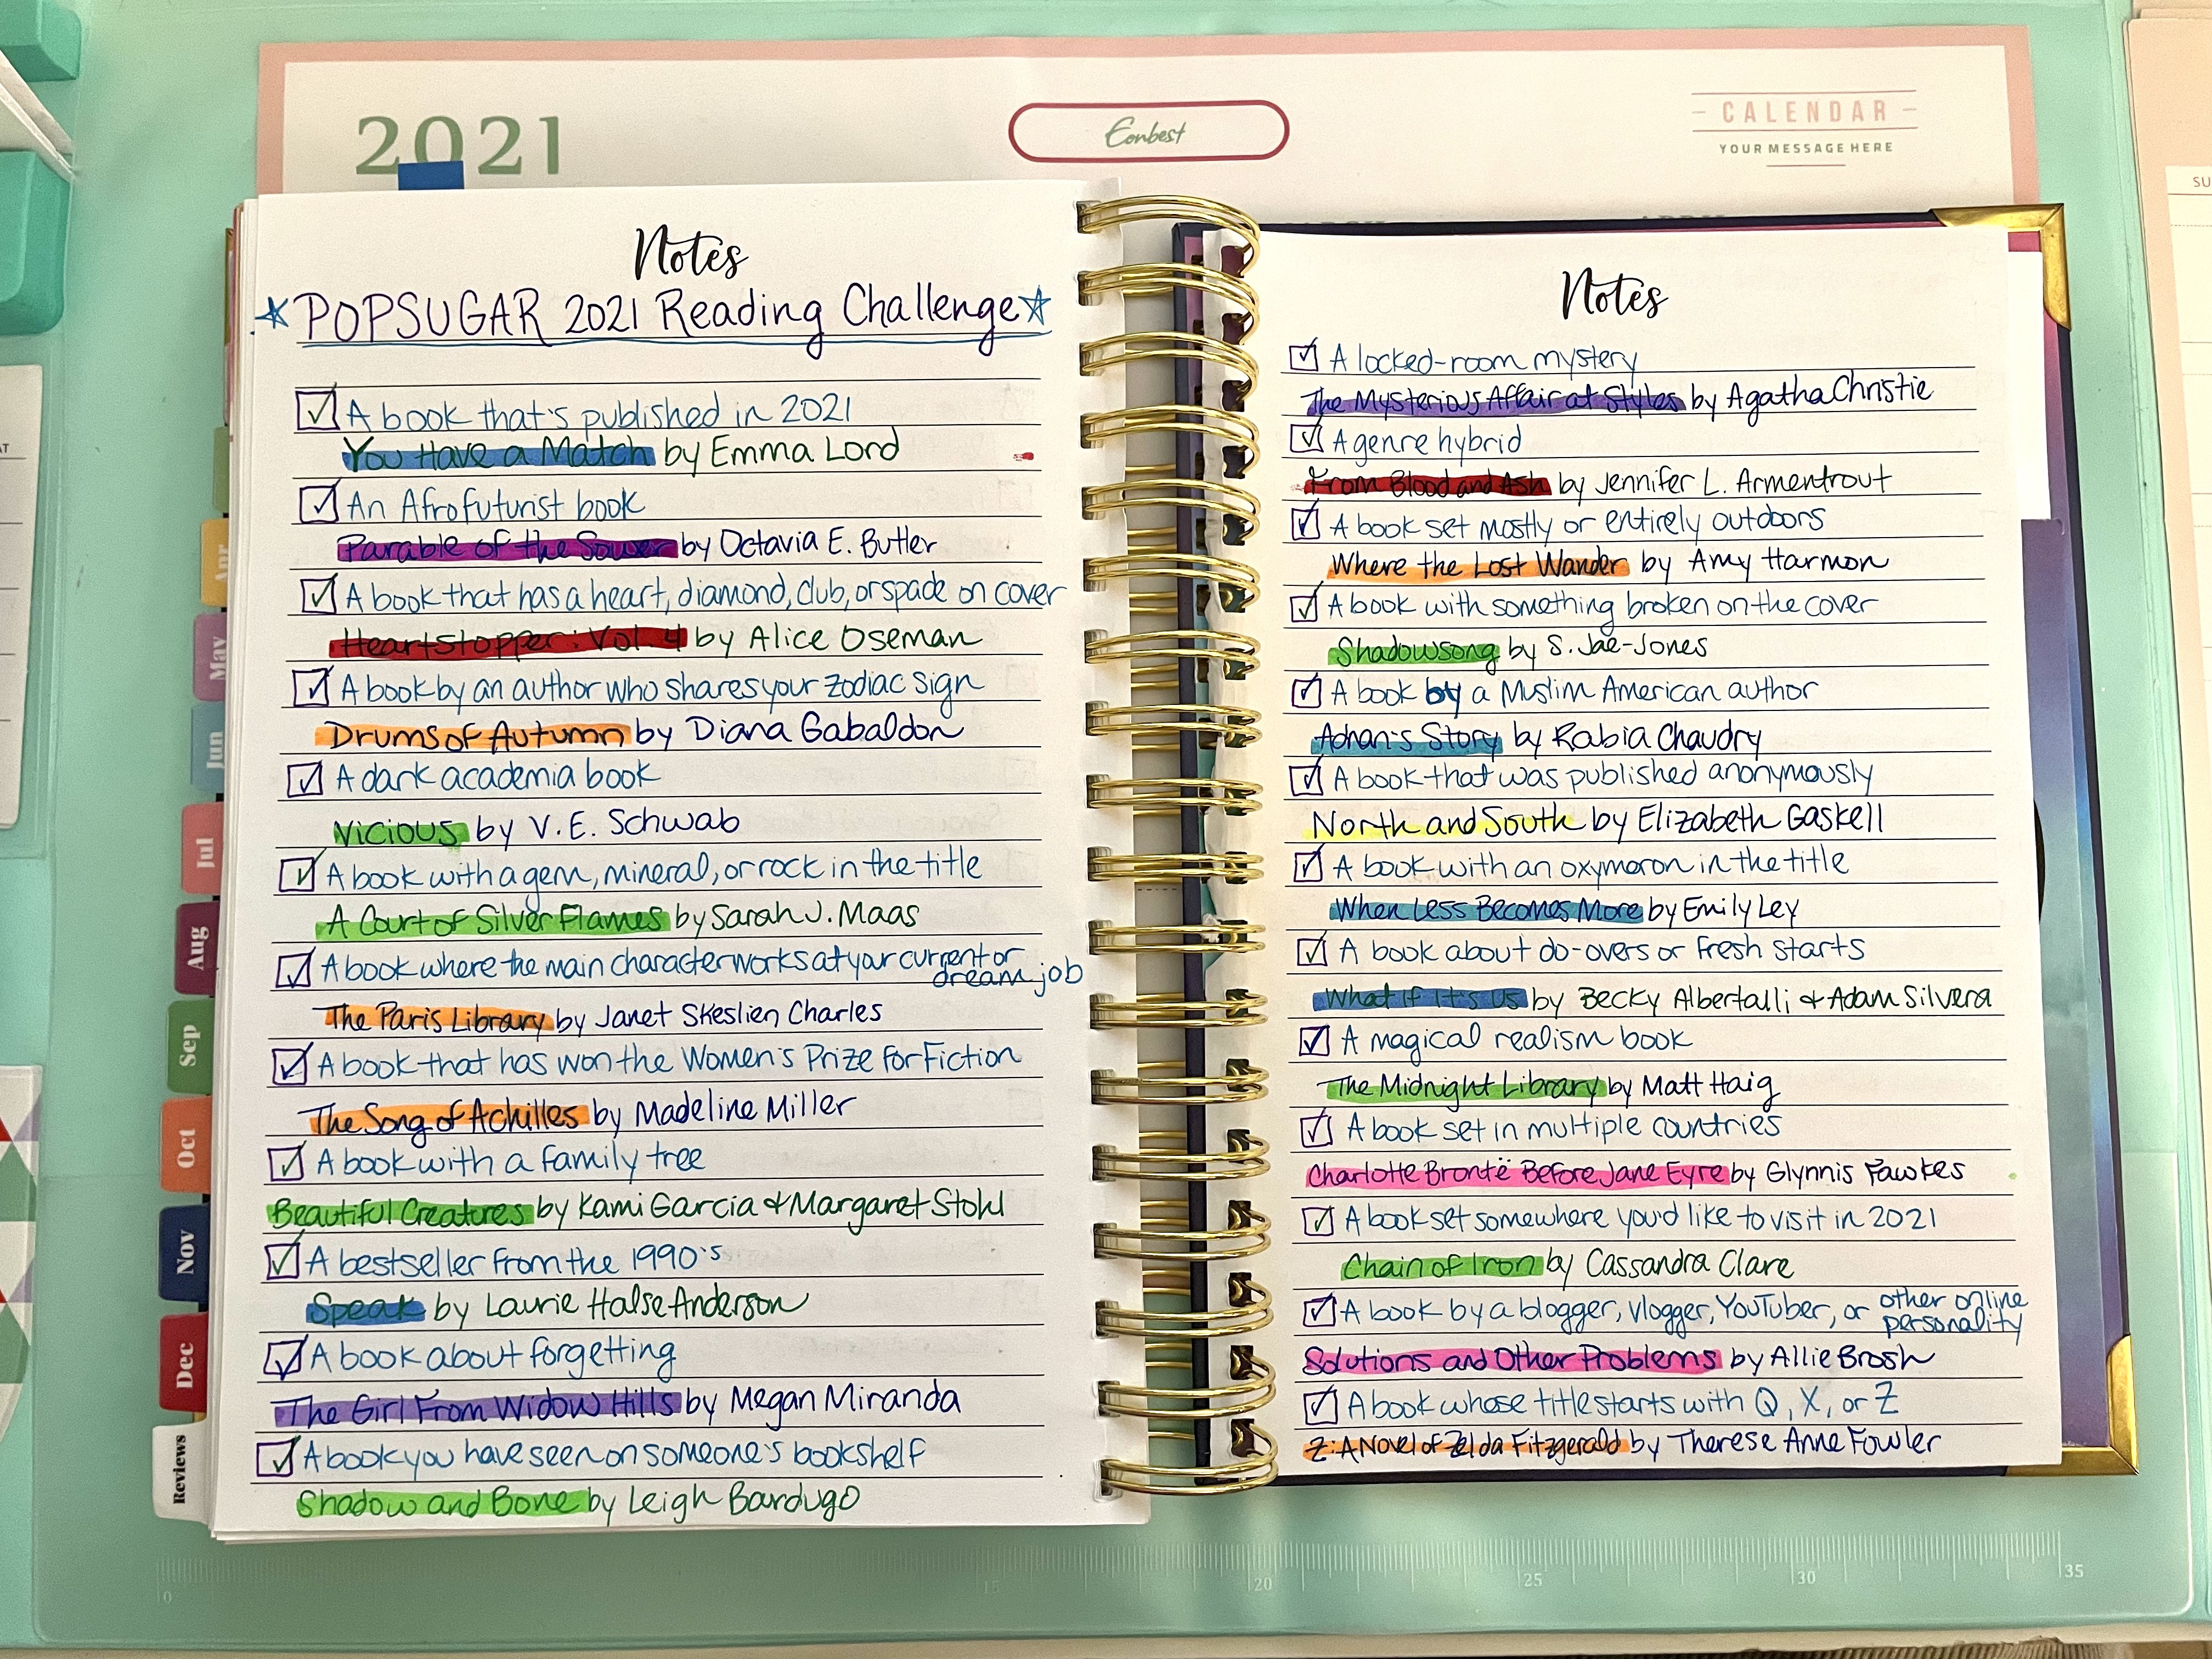 2021
Eonbest
CALENDAR
YOUR MESSAGE HERE
SU
Notes
POPSUGAR 2021 Reading Challenge
A book that's published in 2021
You Have a Match by Emma Lord
An Afrofuturist book
Parable of the Sower by Octavia E. Butler
A book that has a heart, diamond, club, or spade on cover
Heartstopper: Vol. 4 by Alice Oseman
A book by an author who shares your zodiac sign
Drums of Autumn by Diana Gabaldon
A dark academia book
Vicious by V.E. Schwab
A book with a gem, mineral, or rock in the title
A Court of Silver Flames by Sarah J. Maas
A book where the main character works at your current or
dream job
The Paris Library by Janet Skeslien Charles
A book that has won the Women's Prize for Fiction
The Song of Achilles by Madeline Miller
A book with a family tree
Beautiful Creatures by Kami Garcia & Margaret Stohl
A bestseller from the 1990's
Speak by Laurie Halse Anderson
A book about forgetting
The Girl From Widow Hills by Megan Miranda
A book you have seen on someone's bookshelf
Shadow and Bone by Leigh Bardugo
Apr
May
Jun
Jul
Aug
Sep
Oct
Nov
Dec
Reviews
Notes
A locked-room mystery
The Mysterious Affair at Styles by Agatha Christie
A genre hybrid
From Blood and Ash by Jennifer L. Armentrout
A book set mostly or entirely outdoors
Where the Lost Wander by Amy Harmon
A book with something broken on the cover
Shadowsong by S. Jae-Jones
A book by a Muslim American author
Adnan's Story by Rabia Chaudry
A book that was published anonymously
North and South by Elizabeth Gaskell
A book with an oxymoron in the title
When Less Becomes More by Emily Ley
A book about do-overs or fresh starts
What If It's Us by Becky Albertalli & Adam Silvera
A magical realism book
The Midnight Library by Matt Haig
A book set in multiple countries
Charlotte Brontë Before Jane Eyre by Glynnis Fawkes
A book set somewhere you'd like to visit in 2021
Chain of Iron by Cassandra Clare
A book by a blogger, vlogger, YouTuber, or other online
personality
Solutions and Other Problems by Allie Brosh
A book whose title starts with Q, X, or Z
Z: A Novel of Zelda Fitzgerald by Therese Anne Fowler
0
15
20
25
30
35